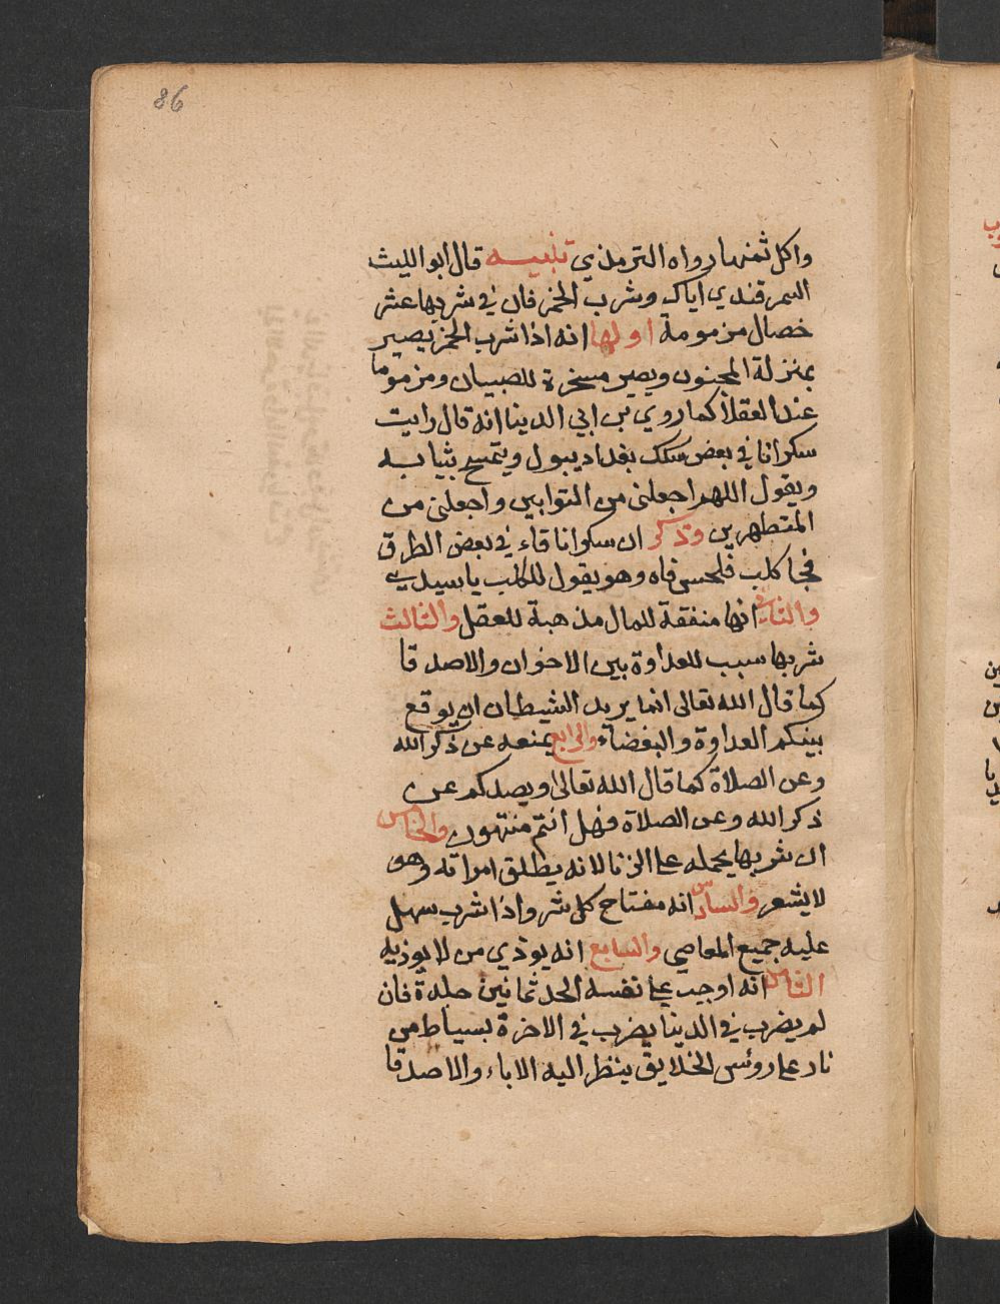 86
واكل ثمنها رواه الترمذي تنبيه قال ابو الليث
السمرقندي اياك وشرب الخمر فان في شربها عشر
خصال مزمومة اولها انه اذا شرب الخمر يصير
بمنزلة المجنون ويصير مسخرة للصبيان ومزموما
عند العقلا كما روي بن ابي الدينا انه قال رايت
سكرانا في بعض سكك بغداد يبول ويتمسح بثيابه
ويقول اللهم اجعلني من التوابين واجعلني من
المتطهرين وذكر ان سكرانا قاء في بعض الطرق
فجا كلب فلحس فاه وهو يقول للكلب يا سيدي
والثاني انها منفقة للمال مذهبة للعقل والثالث
شربها سبب للعداوة بين الاخوان والاصدقا
كما قال الله تعالى انما يريد الشيطان ان يوقع
بينكم العداوة والبغضاء والرابع يمنعه عن ذكر الله
وعن الصلاة كما قال الله تعالى ويصدكم عن
ذكر الله وعن الصلاة فهل انتم منتهون والخامس
ان شربها يحمله على الزنا لانه يطلق امراته وهو
لا يشعر والسادس انه مفتاح كل شر واذا شرب سهل
عليه جميع المعاصي والسابع انه يوذي من لا يوذيه
الثامن انه اوجب على نفسه الحد ثمانين جلدة فان
لم يضرب في الدينا يضرب في الاخرة بسياط من
نار على روئس الخلايق ينظر اليه الاباء والاصدقا